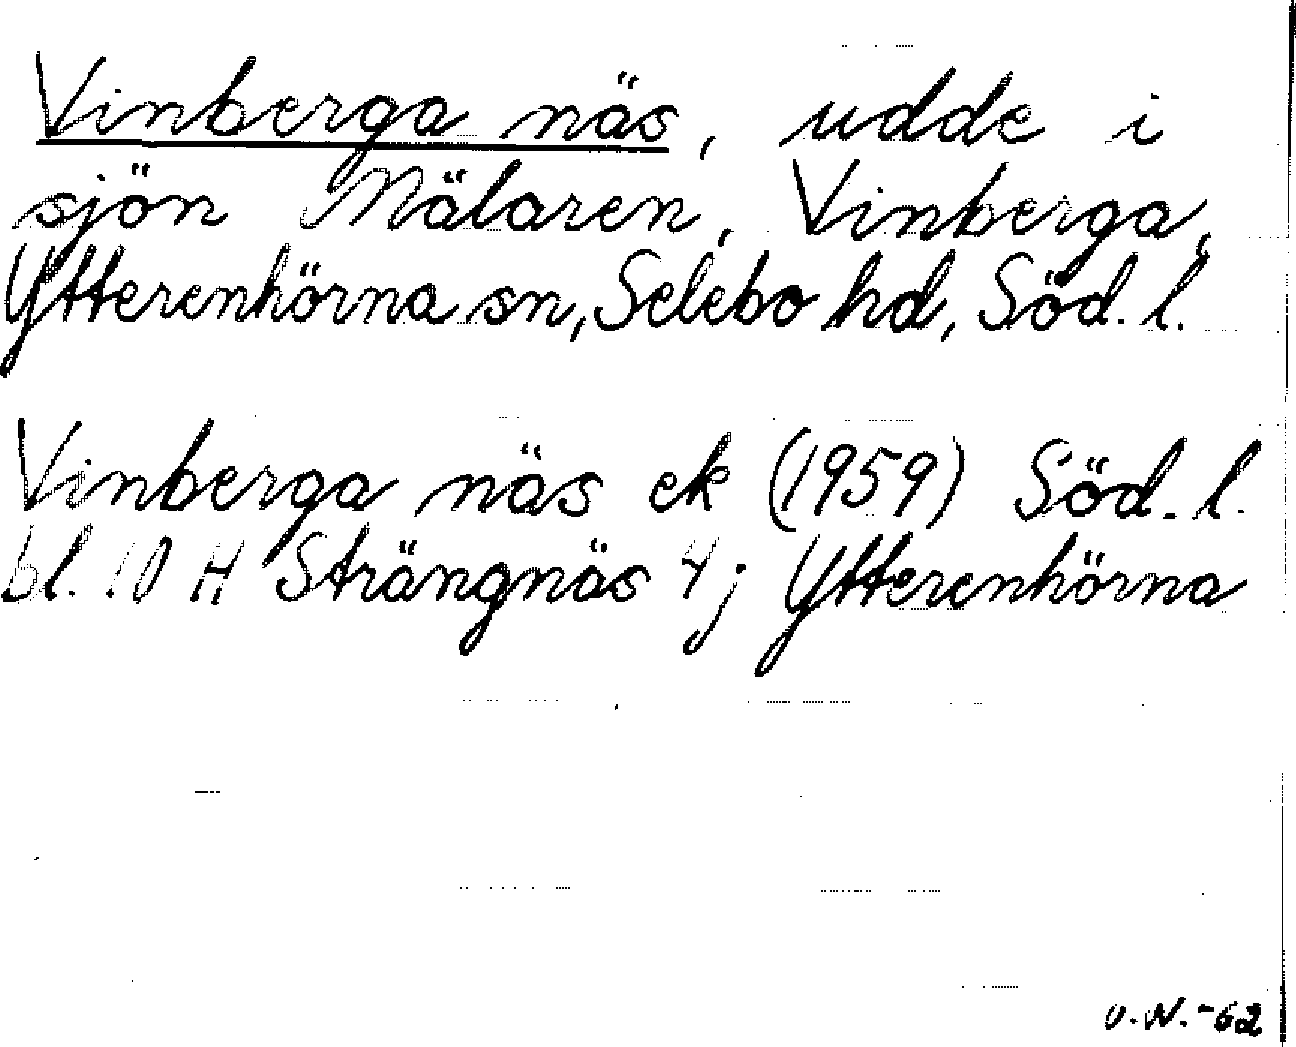 Vinberga näs, udde i
sjön Mälaren, Vinberga,
Ytterenhörna sn, Selebo hd, Söd. l.
Vinberga näs ek (1959) Söd. l.
bl. 10 H Strängnäs 4j Ytterenhörna
U.N.-62